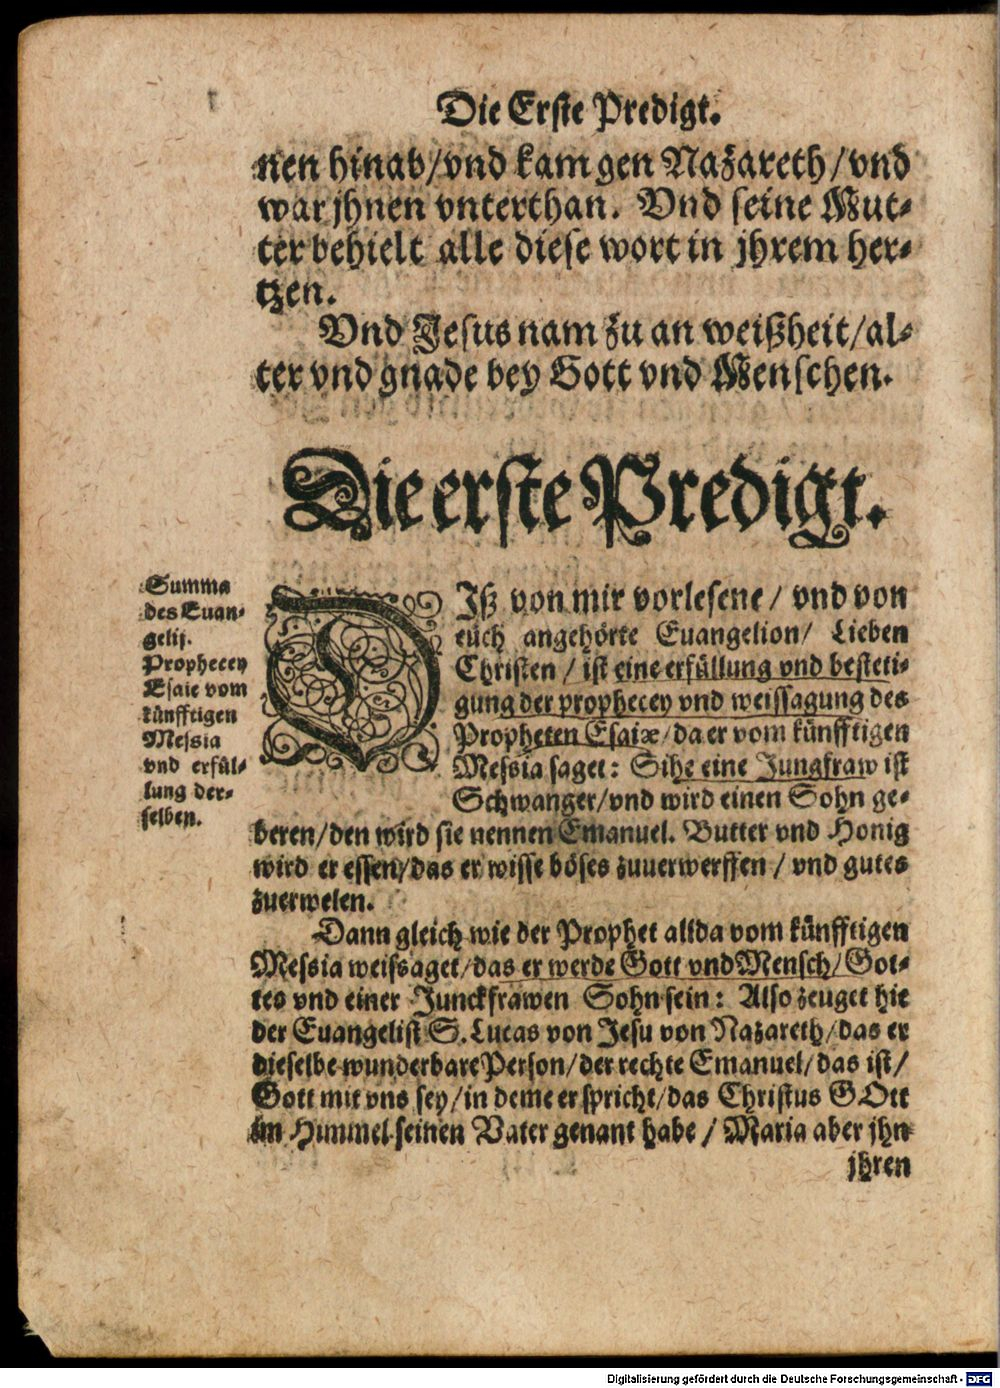 Die Erste Predigt.
nen hinab/vnd kam gen Nazareth/vnd
war jhnen vnterthan. Vnd seine Mut-
ter behielt alle diese wort in jhrem her-
tzen.
Vnd Jesus nam zu an weißheit/al-
ter vnd gnade bey Gott vnd Menschen.
Die erste Predigt.
Summa
des Euan-
gelij.
Prophecey
Esaie vom
künfftigen
Messia
vnd erfül-
lung der-
selben.
DIß von mir vorlesene / vnd von
euch angehörte Euangelion/ Lieben
Christen / ist eine erfüllung vnd besteti-
gung der prophecey vnd weissagung des
Propheten Esaiæ/da er vom künfftigen
Messia saget: Sihe eine Jungfraw ist
Schwanger/vnd wird einen Sohn ge-
beren/den wird sie nennen Emanuel. Butter vnd Honig
wird er essen/das er wisse böses zuuerwerffen / vnd gutes
zuerwelen.
Dann gleich wie der Prophet allda vom künfftigen
Messia weissaget/das er werde Gott vnd Mensch/Got-
tes vnd einer Junckfrawen Sohn sein: Also zeuget hie
der Euangelist S. Lucas von Jesu von Nazareth/das er
dieselbe wunderbare Person/der rechte Emanuel/das ist/
Gott mit vns sey/in deme er spricht/das Christus GOtt
im Himmel seinen Vater genant habe / Maria aber jhn
jhren
Digitalisierung gefördert durch die Deutsche Forschungsgemeinschaft - DFG